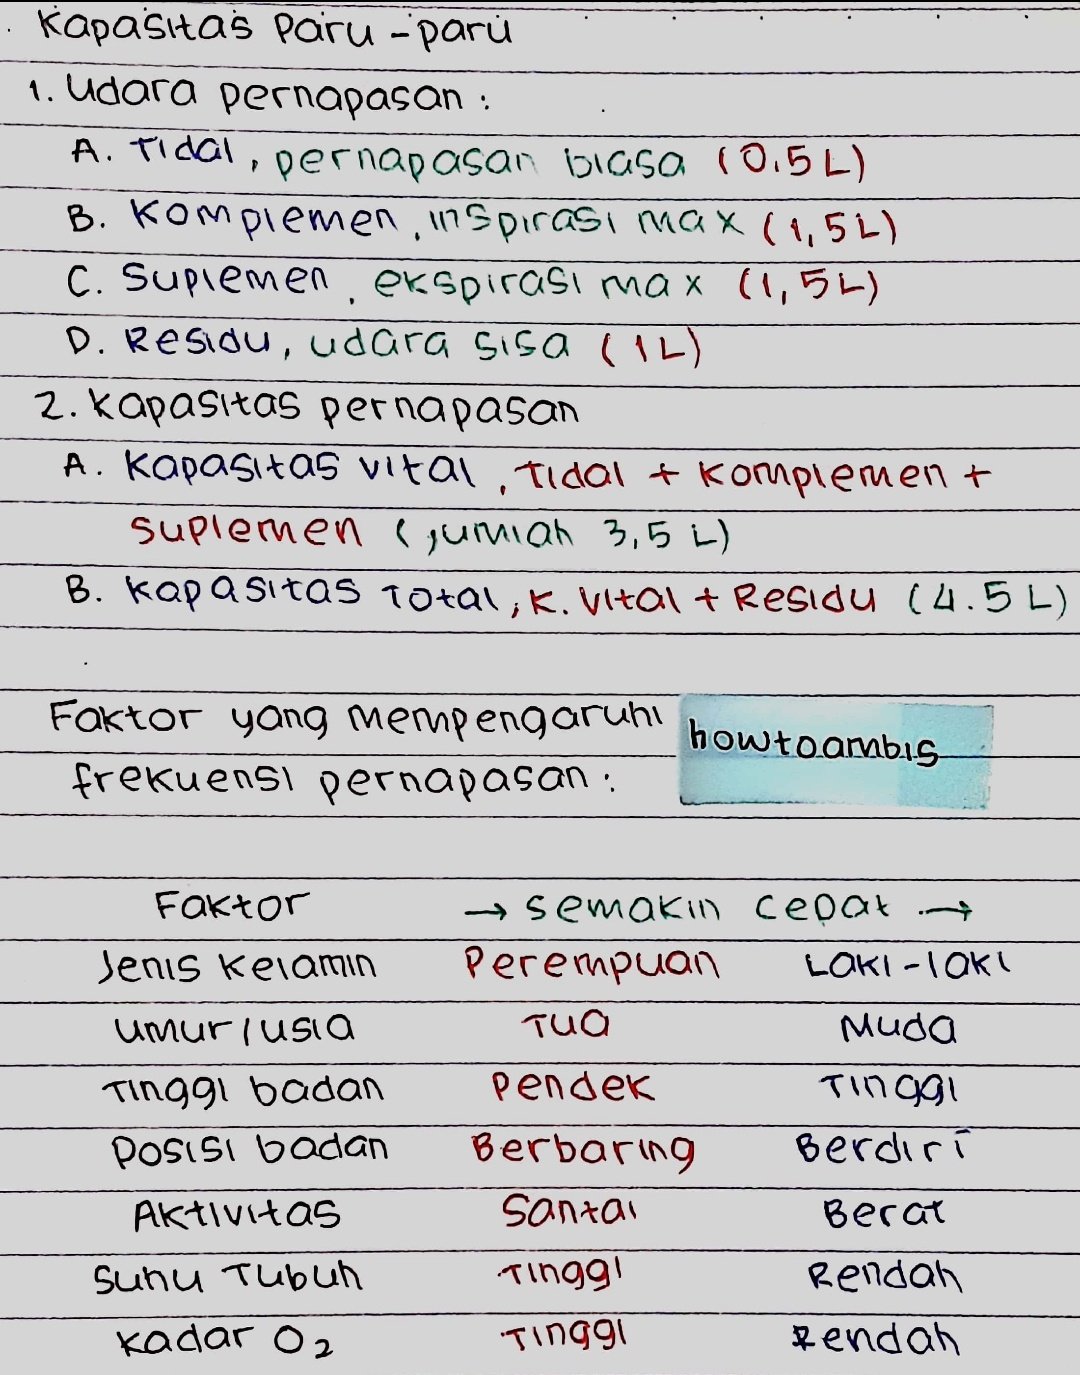 Kapasitas Paru-paru
1. Udara pernapasan :
A. Tidal, pernapasan biasa (0.5 L)
B. Komplemen, inspirasi max (1,5 L)
C. Suplemen, ekspirasi max (1,5 L)
D. Residu, udara sisa (1 L)
2. Kapasitas pernapasan
A. Kapasitas vital, Tidal + Komplemen +
suplemen (jumlah 3,5 L)
B. Kapasitas Total, K. Vital + Residu (4.5 L)
Faktor yang mempengaruhi
frekuensi pernapasan :
howtoambis
Faktor → semakin cepat →
Jenis Kelamin Perempuan Laki-laki
Umur/usia Tua Muda
Tinggi badan Pendek Tinggi
Posisi badan Berbaring Berdiri
Aktivitas Santai Berat
Suhu Tubuh Tinggi Rendah
Kadar O₂ Tinggi Rendah